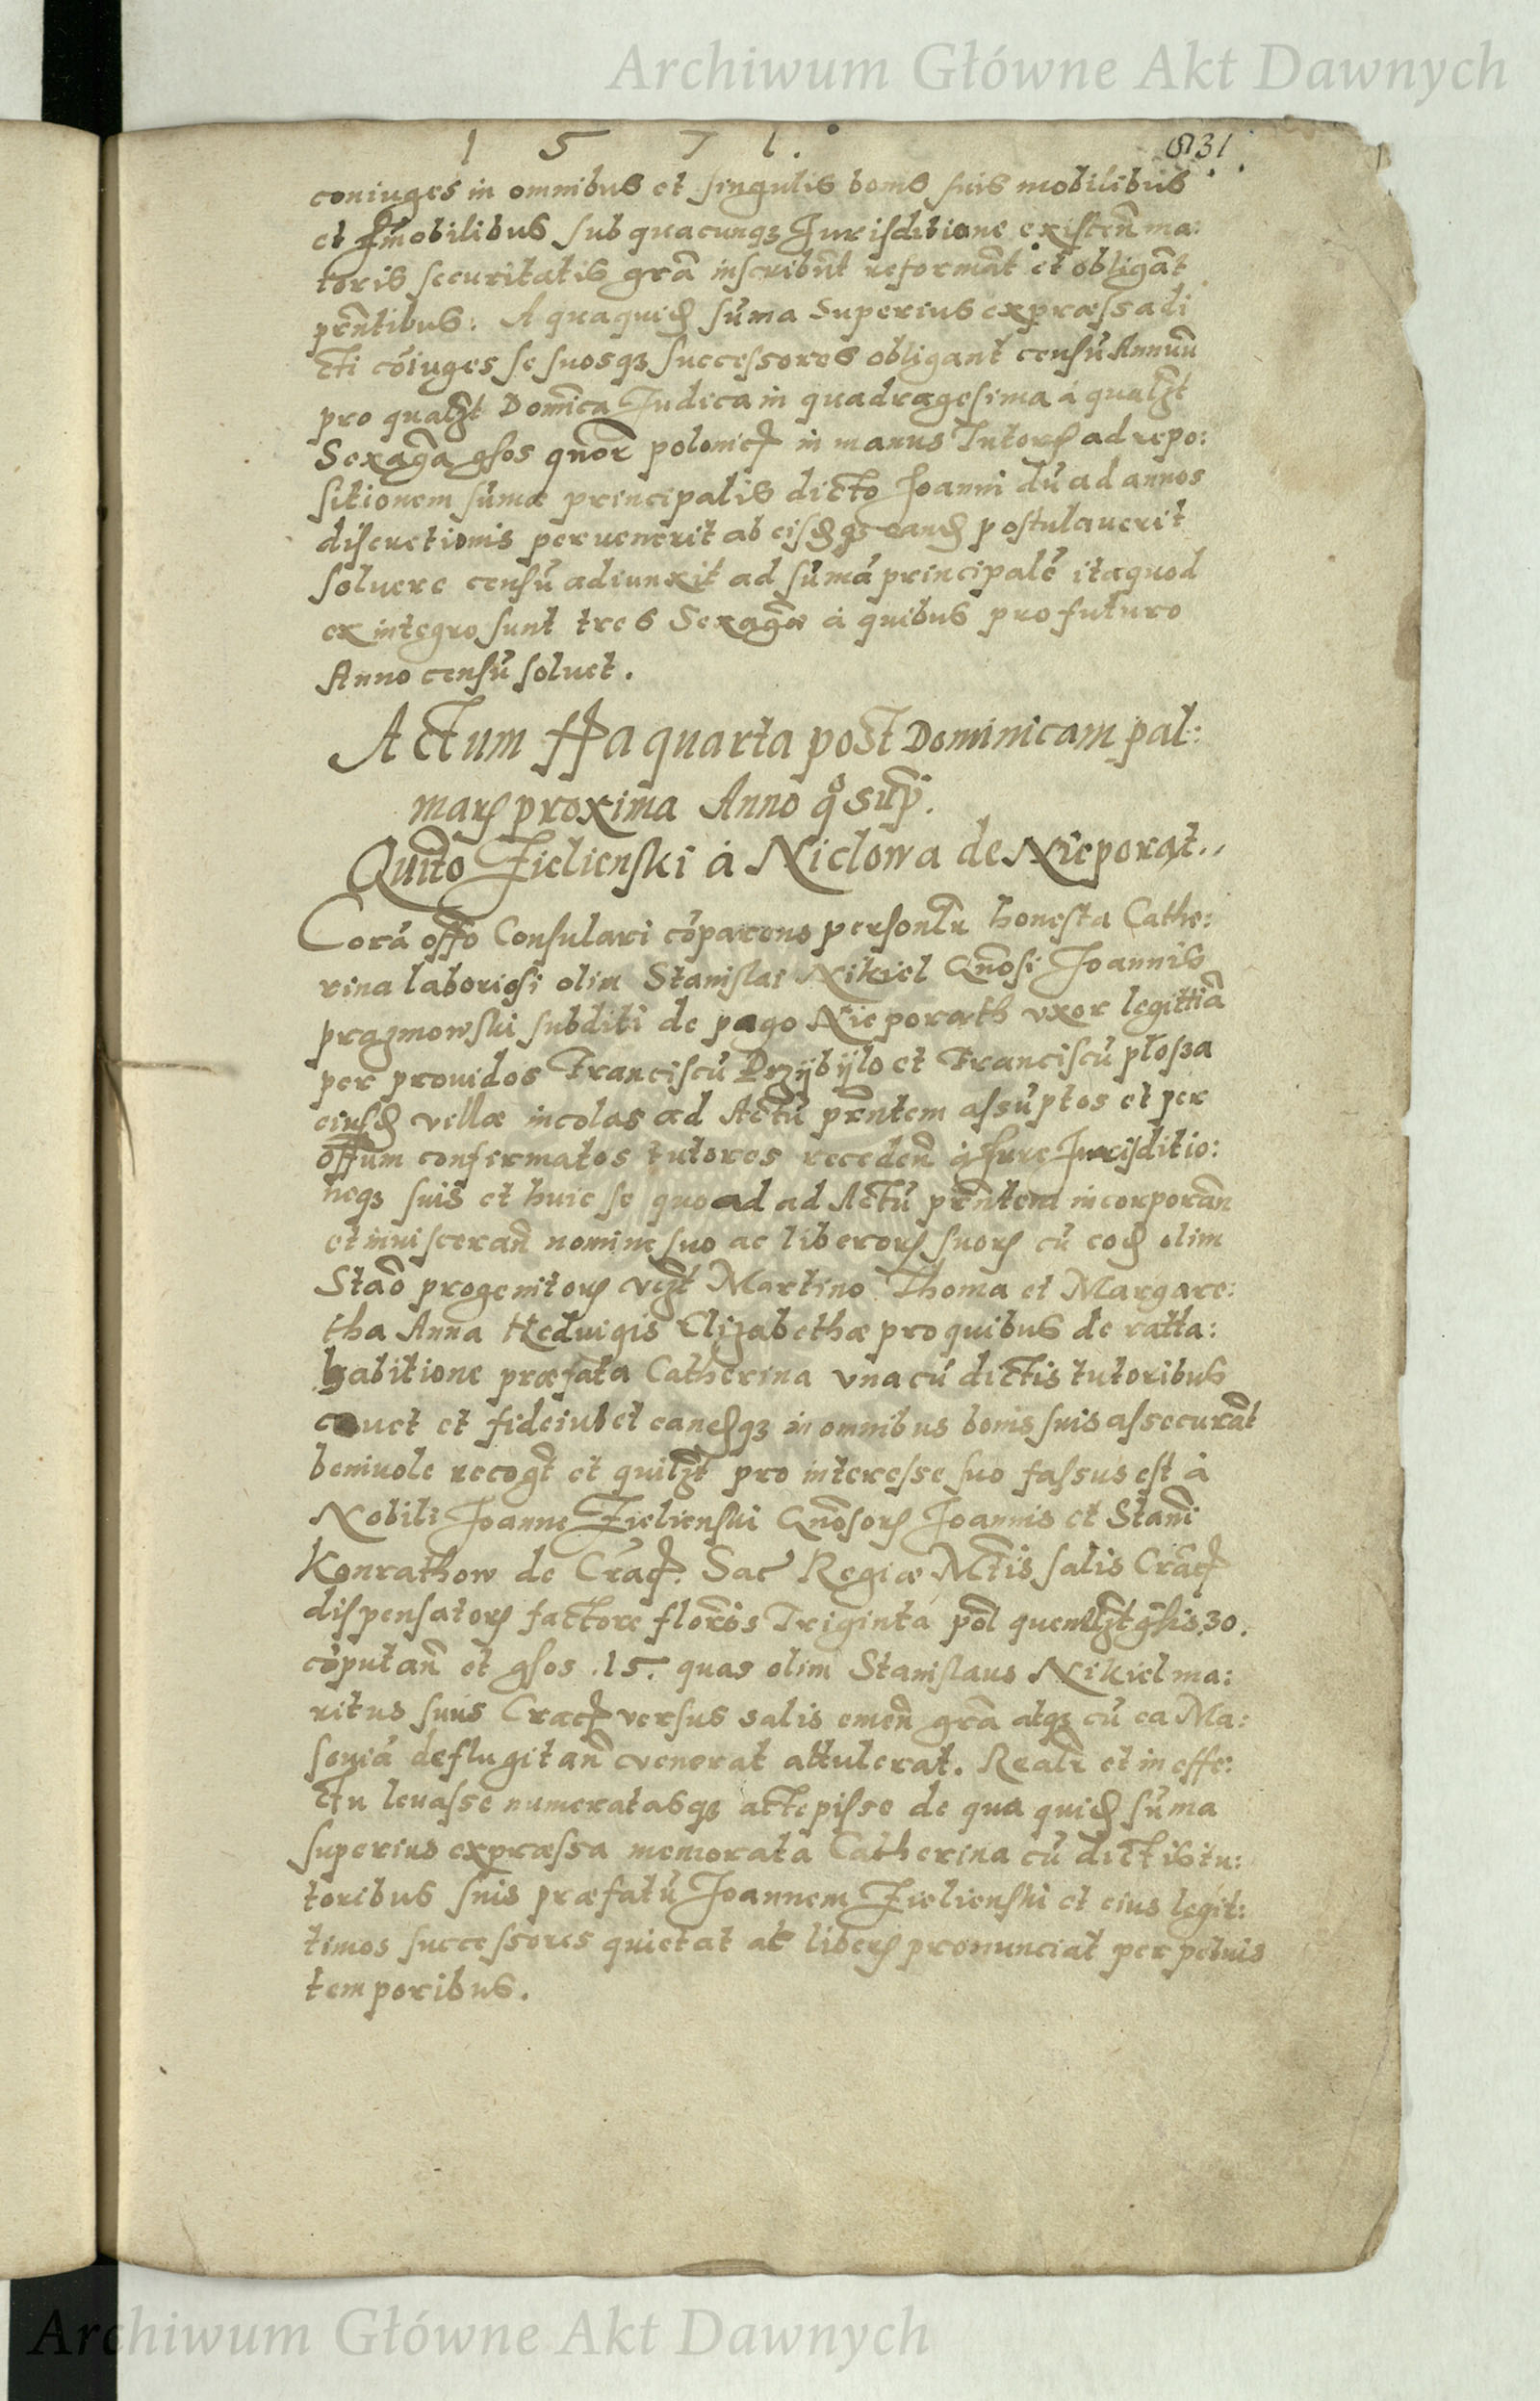 Archiwum Główne Akt Dawnych
1571.
831
coniuges in omnibus et singulis bonis suis mobilibus
et Im̄obilibus sub quacunqȝ Jurisditione existen̄ ma:
toris securitatis grā inscribūt reformāt et obligāt
prn̄tibus: A qua quidē sūma Superius expræssa di
cti cōiuges se suosqȝ successores obligant censū Annuū
pro qualȝt Domīca Judica in quadragesima à qualȝt
Sexagā gsos qnōr polonic in manus Tutorꝝ ad repo:
sitionem sūmæ principalis dicto Joanni dū ad annos
discretionis peruenerit ab eisdqȝ eand postulauerit
soluere censū adiunxit ad sūmā principalē ita quod
ex integro sunt tres Sexagæ à quibus pro futuro
Anno censū soluet.
Actum ffa quarta post Dominicam pal:
marꝝ proxima Anno qº sup̄.
Quito Zielienski à Niclowa de Nieporat..
Corā offo Consulari cōparens personlr honesta Cathe:
rina laboriosi olim Stanislai Nikiel Gnōsi Joannis
prazmowski subditi de pago Nieporath vxor legittiā
per prouidos Franciscū Przÿbÿlo et Franciscū plosza
eiusd villæ incolas ad Actū prn̄tem assūptos et per
offum confirmatos tutores receden̄ à Jure Jurisditio:
neqȝ suis et huic se quoad ad Actū prn̄tem incorporan̄
et inuisceran̄ nomine suo ac liberorꝝ suorꝝ cū eod olim
Staō progenitorꝝ vzt Martino Thoma et Margare:
tha Anna Hedwigis Elizabethæ pro quibus de ratta:
habitione præfata Catherina vna cū dictis tutoribus
cauet et fideiubet eandqȝ in omnibus bonis suis assecurāt
beniuole recogt et quilȝt pro interesse suo fassus est à
Nobili Joanne Zielienski Gnōsorꝝ Joannis et Stani
Konrathow de Crac. Sac Regiæ Mtis salis Crac
dispensatorꝝ factore florēos Triginta pol quemlȝt gsis 30.
cōputan̄ et gsos .15. quas olim Stanislaus Nikiel ma:
ritus suus Crac versus salis emen̄ grā atqȝ cū ea Ma:
souiā deflugitan̄ venerat attulerat. Realr et in effe:
ctu leuasse numeratasqȝ accepisse de qua quid sūma
superius expræssa memorata Catherina cū dictis tu:
toribus suis præfatū Joannem Zielienski et eius legit:
timos successores quietat ac liberꝝ pronunciat perpetuis
temporibus.
Archiwum Główne Akt Dawnych